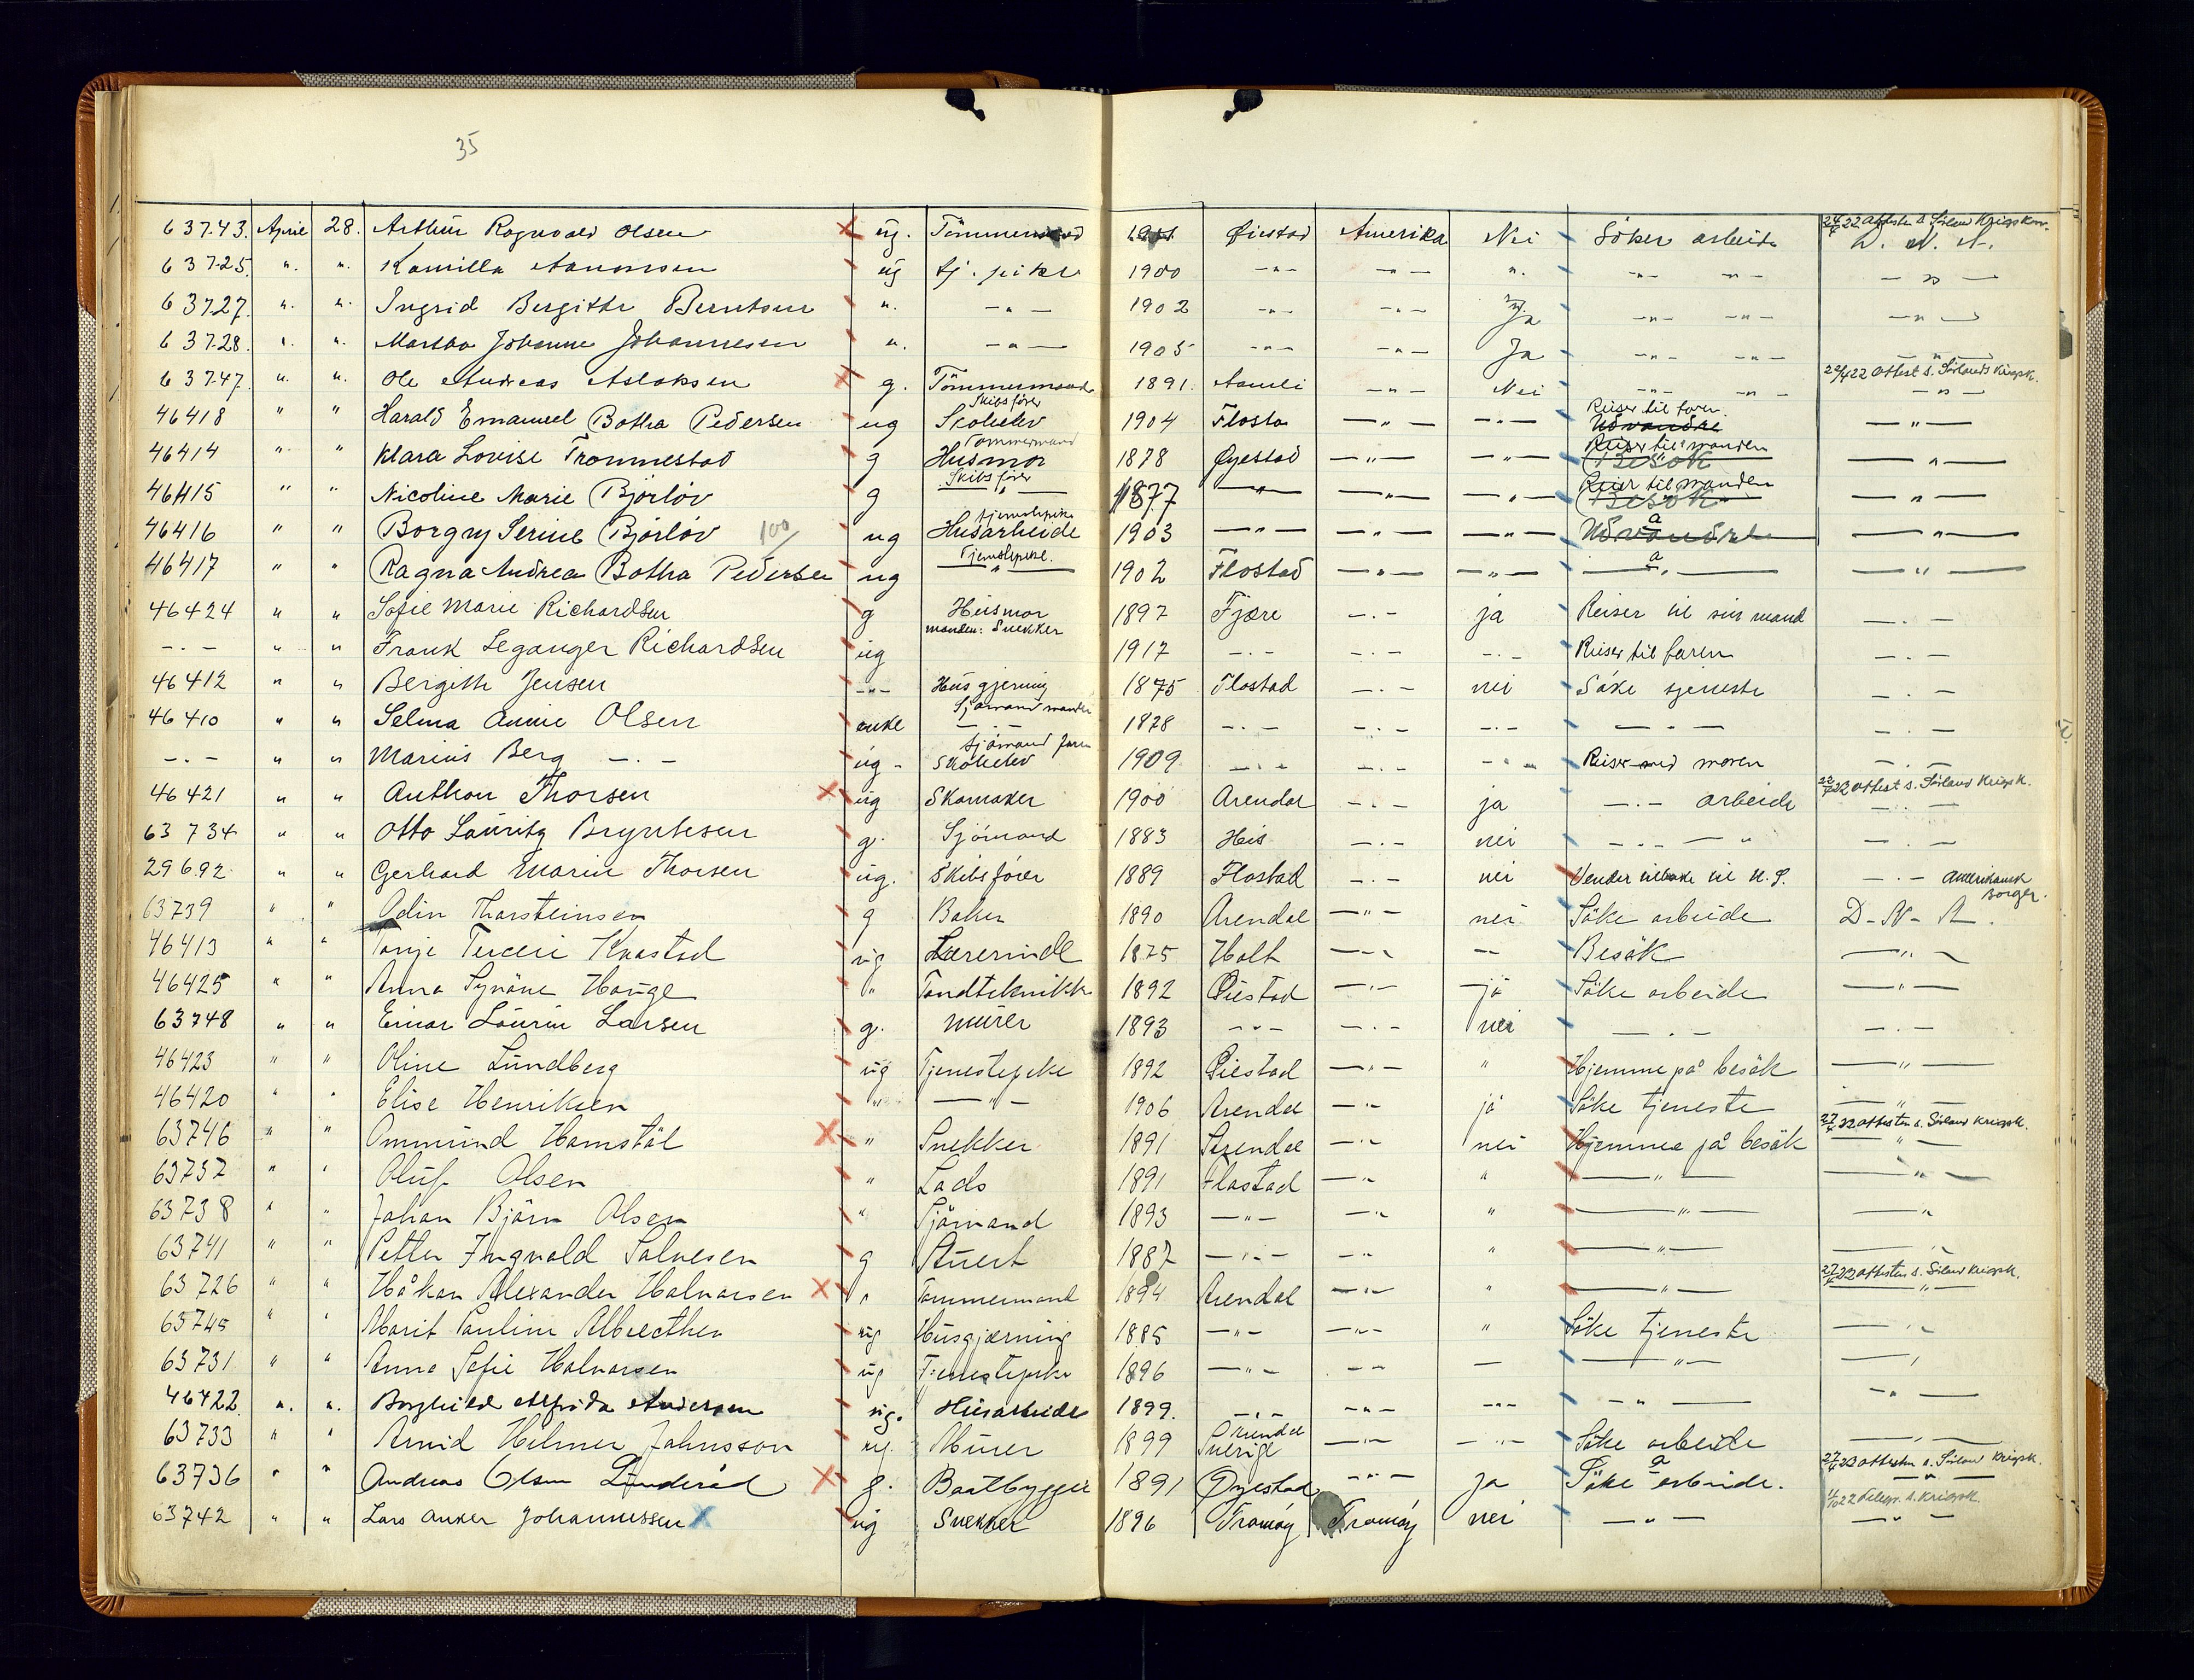 35
63743. April 28. Arthur Ragnvald Olsen ug. Øiestad Amerika Nei Söker arbeide 24/4 22 attesten s. Sörland Krigskom. D. N. A.
63725. " " Kamilla Aanonsen ug tj. pike 1900 -"- -"- " -"- -"- -"-
63727. " " Ingrid Bergitte Berntsen " -"- 1902 -"- -"- Ja -"- -"- -"-
63728. " " Martha Johanne Johannesen " -"- 1905 -"- -"- Ja -"- -"- -"-
63747. " " Ole Andreas Aslaksen g. Tömmermand 1891. Aamli -"- Nei -"- -"- 22/4 22 attest s. Sörlands Krigsk. -"-
46418 " " Harald Emanuel Botha Pedersen ug Skibsförer Skoleelev 1904 Flosta -"- -"- Reiser til faren. Udvandre -"-
46414 " " Klara Lovise Trommestad g Tömmermand Husmor 1878 Øyestad -"- -"- Reiser til manden Besøk -"-
46415 " " Nicoline Marie Bjørløv g Skibsfører -"- 1877 -"- -"- -"- Reiser til manden Besøk -"-
46416 " " Borgny Serine Bjørløv 100 ug Tjenestepike Husarbeide 1903 -"- -"- -"- a Udvandre -"-
46417 " " Ragna Andrea Botha Pedersen ug Tjenestepike. -"- 1902 Flostad -"- -"- a -"- -"-
46424 " " Sofie Marie Richardsen g Husmor manden: Snekker 1897 Fjære -"- ja Reiser til sin mand -"-
-"- " " Frank Leganger Richardsen ug 1917 -"- -"- -"- Reiser til faren -"-
46412 " " Bergith Jensen -"- Husgjerning 1875 Flostad -"- nei Söke tjeneste -"-
46410 " " Selma Annie Olsen enke Sjömand manden -"- 1878 -"- -"- -"- -"- -"-
-"- " " Marius Berg -"- ug - Sjömand faren Skoleelev 1909 -"- -"- -"- Reiser med moren -"-
46421 " " Anthon Thorsen ug Skomaker 1900 Arendal -"- ja -"- arbeide 22/4 22 attest s. Sörland Krigsk. -"-
63734 " " Otto Lauritz Bryntesen g. Sjömand 1883 His -"- nei -"- " -"-
29692 " " Gerhard Marin Thorsen ug. Skibsförer 1889 Flostad -"- nei Vender tilbake til U.S. -"- Amerikansk Borger.
63739 " " Odin Thorsteinsen g Baker 1890 Arendal -"- nei Söke arbeide D-N-A.
46413 " " Knastad ug Lærerinde 1875 Holt -"- -- Besök -"-
46425 " " Anna Synöve Hauge " Tandteknikk 1892 Øiestad -"- ja Söke arbeide -"-
63748 " " Einar Laurin Larsen g. Murer 1893 -"- -"- nei -"- -"-
46423 " " Oline Lundberg ug Tjenestepike 1892 Øiestad -"- " Hjemme på besök -"-
46420 " " Elise Henriksen " -"- 1906 Arendal -"- ja Söke tjeneste -"-
63746 " " Ommund Homstöl " Snekker 1891 Arendal -"- nei Hjemme på besök 27/4 22 attesten s. Sörland Krigsk. -"-
63737 " " Oluf Olsen " Lods 1891 Flostad -"- " -"- -"-
63738 " " Johan Björn Olsen " Sjömand 1893 -"- -"- " -"- -"-
63741 " " Petter Ingvald Salvesen g Stuert 1887 -"- -"- " -"- -"-
63726 " " Håkon Alexander Halvorsen " Tömmermand 1894 Arendal -"- " -"- 27/4 22 attesten s. Sörland Krigsk. -"-
63745 " " Marit Pauline Albrecthen ug Husgjerning 1885 -"- -"- " Söke tjeneste -"-
63731 " " Anna Sofie Halvorsen ug Tjenestepike 1896 -"- -"- - -"- -"-
46422 " " Borghild Alfrida Andersen ug. Husarbeide 1899. -"- -"- -"- -"- -"-
63733 " " Arvid Hilmer Johnsson ug. Murer 1899 Arendal Sverige -"- -"- Söke arbeide -"-
63736 " " Andreas Olsen Linderöd g. Baatbygger 1891 Øyestad -"- ja a Söke arbeide. 27/4 22 attesten s. Sörland Krigsk. -"-
63742 " " Lars Anker Johannessen ug Snekker 1896 Tromöy Tromöy nei -"- 22 Telegr. s. Krigsk. -"-